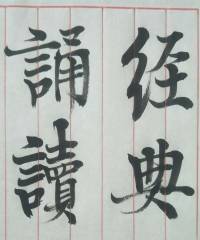 经典
誦讀